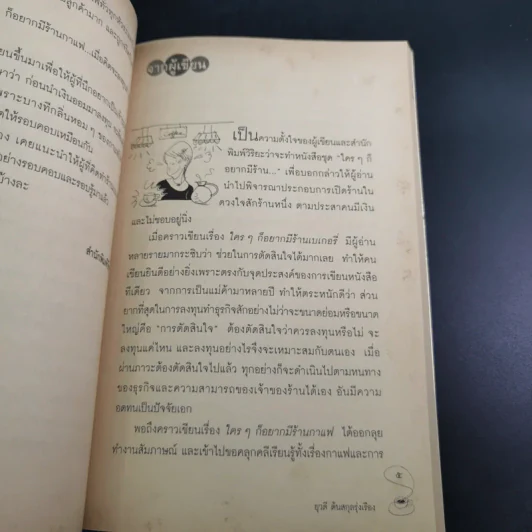 ลูกค้ามาก และถูกใจ
ก็อยากมีร้านกาแฟ...เมื่อ
เขียนขึ้นมาเพื่อให้ผู้ที่นึกอยากเป็น
ว่า ก่อนนำเงินออมมาลงทุน
เพราะบางทีกลิ่นหอม ๆ ของกาแฟ
ให้รอบคอบเหมือนกัน
เคยแนะนำให้ผู้ที่คิดทำร้าน
อย่างรอบคอบและรอบรู้มาแล้ว
บ้างละ
จากผู้เขียน
เป็นความตั้งใจของผู้เขียนและสำนัก
พิมพ์วิริยะว่าจะทำหนังสือชุด "ใคร ๆ ก็
อยากมีร้าน..." เพื่อบอกกล่าวให้ผู้อ่าน
นำไปพิจารณาประกอบการเปิดร้านใน
ดวงใจสักร้านหนึ่ง ตามประสาคนมีเงิน
และไม่ชอบอยู่นิ่ง
เมื่อคราวเขียนเรื่อง ใคร ๆ ก็อยากมีร้านเบเกอรี่ มีผู้อ่าน
หลายรายมากระซิบว่า ช่วยในการตัดสินใจได้มากเลย ทำให้คน
เขียนยินดีอย่างยิ่งเพราะตรงกับจุดประสงค์ของการเขียนหนังสือ
ทีเดียว จากการเป็นแม่ค้ามาหลายปี ทำให้ตระหนักดีว่า ส่วน
ยากที่สุดในการลงทุนทำธุรกิจสักอย่างไม่ว่าจะขนาดย่อมหรือขนาด
ใหญ่คือ "การตัดสินใจ" ต้องตัดสินใจว่าควรลงทุนหรือไม่ จะ
ลงทุนแค่ไหน และลงทุนอย่างไรจึงจะเหมาะสมกับตนเอง เมื่อ
ผ่านภาวะต้องตัดสินใจไปแล้ว ทุกอย่างก็จะดำเนินไปตามหนทาง
ของธุรกิจและความสามารถของเจ้าของร้านได้เอง อันมีความ
อดทนเป็นปัจจัยเอก
พอถึงคราวเขียนเรื่อง ใคร ๆ ก็อยากมีร้านกาแฟ ได้ออกลุย
ทำงานสัมภาษณ์ และเข้าไปขอคลุกคลีเรียนรู้ทั้งเรื่องกาแฟและการ
๕
ยุวดี ตันสกุลรุ่งเรือง